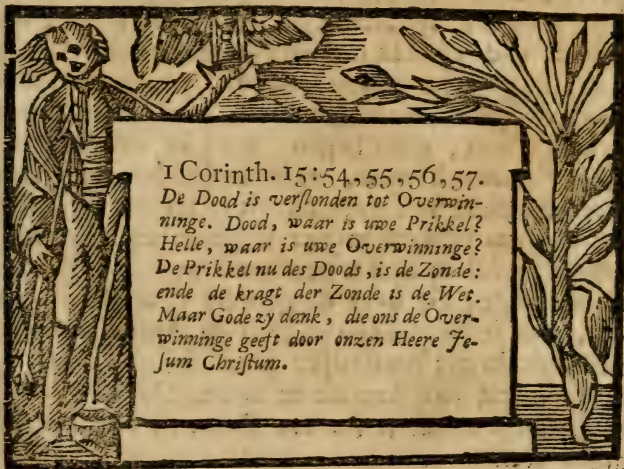 1 Corinth. 15:54,55,56,57.
De Dood is verſlonden tot Overwin-
ninge. Dood, waar is uwe Prikkel?
Helle, waar is uwe Overwinninge?
De Prikkel nu des Doods, is de Zonde:
ende de kragt der Zonde is de Wet.
Maar Gode zy dank, die ons de Over-
winninge geeft door onzen Heere Je-
ſum Chriſtum.